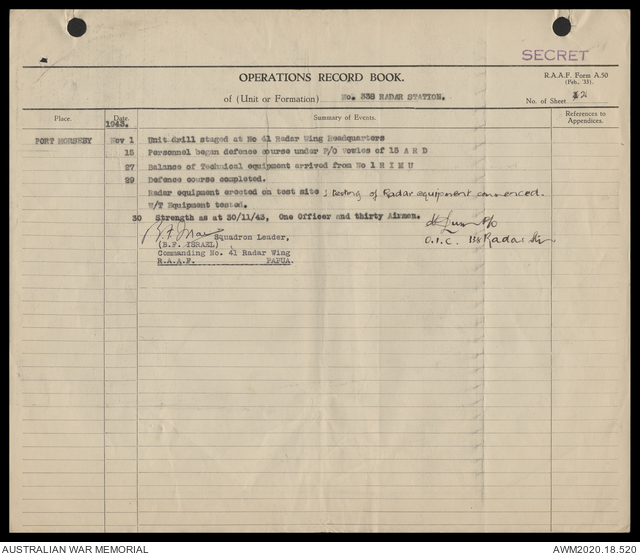 SECRET
OPERATIONS RECORD BOOK.
R.A.A.F. Form A.50
(Feb. '33).
of (Unit or Formation) No. 338 RADAR STATION.
No. of Sheet
Place. Date. Summary of Events. References to Appendices.
1943.
PORT MORESBY Nov 1 Unit drill staged at No 41 Radar Wing Headquarters
15 Personnel began defence course under P/O Vowles of 15 A R D
27 Balance of Technical equipment arrived from No 1 R I M U
29 Defence course completed.
Radar equipment erected on test site ; testing of Radar equipment commenced.
M/T Equipment tested.
30 Strength as at 30/11/43, One Officer and thirty Airmen.
Squadron Leader, P/O
(B.F. ISRAEL) O.I.C. 338 Radar Stn
Commanding No. 41 Radar Wing
R.A.A.F. PAPUA.
AUSTRALIAN WAR MEMORIAL AWM2020.18.520